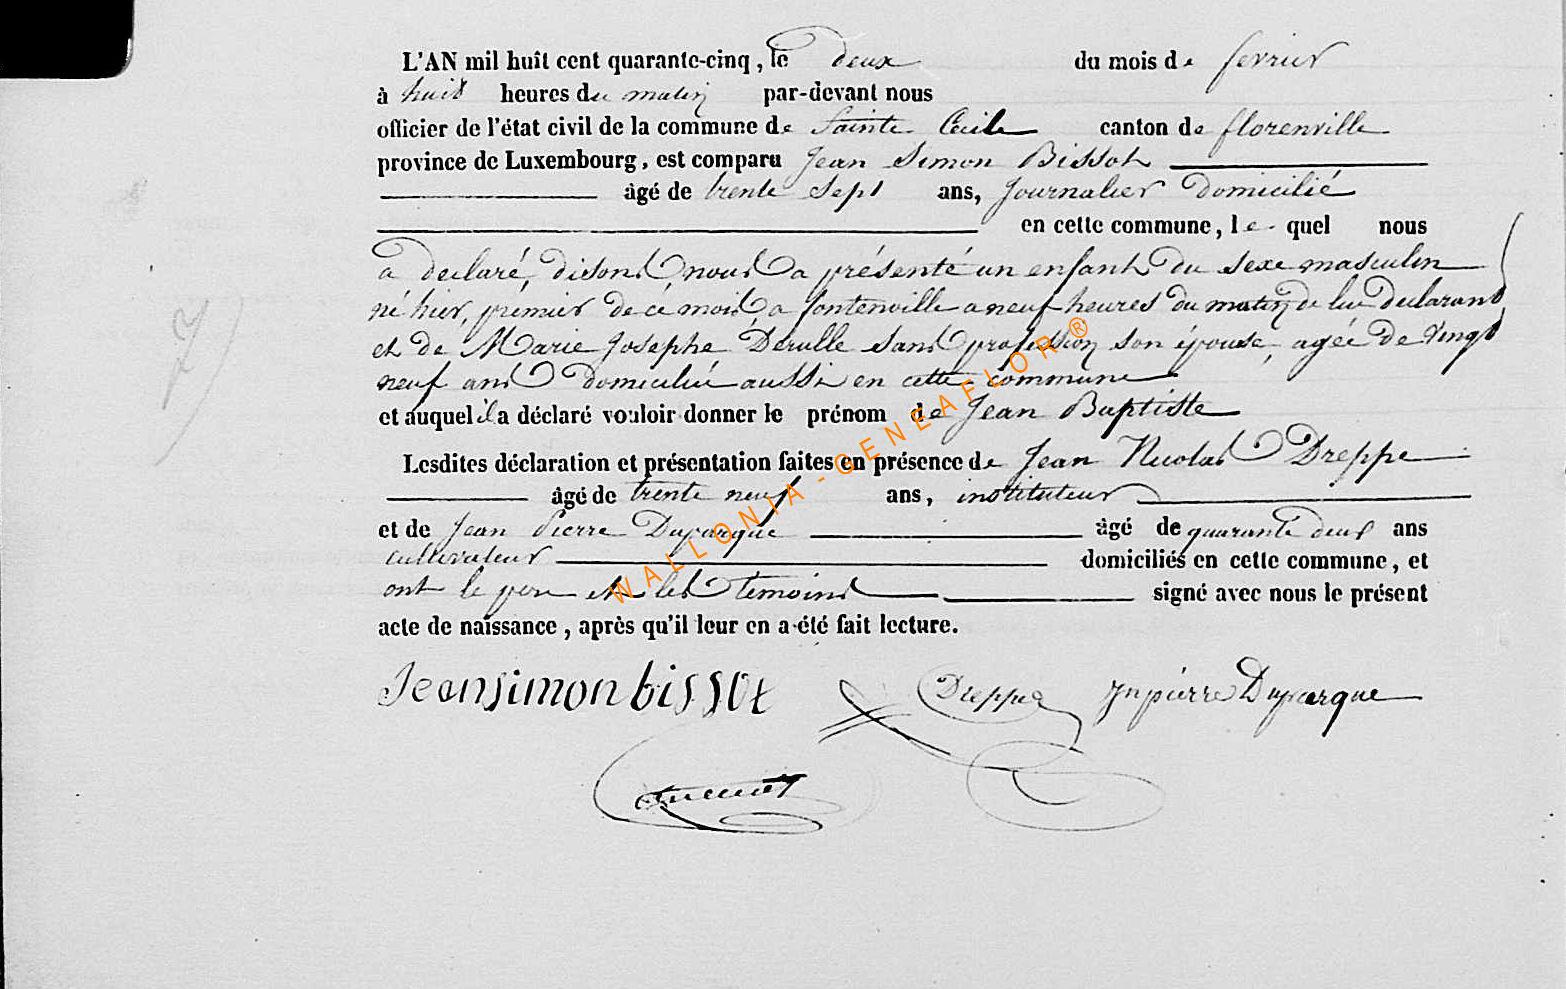 L'AN mil huit cent quarante-cinq, le deux du mois de fevrier
à huit heures du matin par-devant nous
officier de l'état civil de la commune de Sainte Cecile canton de florenville
province de Luxembourg, est comparu Jean Simon Bissot
âgé de trente sept ans, Journalier Domicilié
en cette commune, le quel nous
a declaré, disons nous a présenté un enfant du sexe masculin
né hier, premier de ce mois a fontenoille a neuf heures du matin de lui declarant
et de Marie Josephe Derulle sans profession son épouse, agée de vingt
neuf ans Domiciliée aussi en cette commune
et auquel il a déclaré vouloir donner le prénom de Jean Baptiste
Lesdites déclaration et présentation faites en présence de Jean Nicolas Dreppe
âgé de trente neuf ans, instituteur
et de Jean Pierre Duparque âgé de quarante deux ans
cultivateur domiciliés en cette commune, et
ont le pere et les temoins signé avec nous le présent
acte de naissance, après qu'il leur en a été fait lecture.
Jean simon bissot Dreppe Jn pierre Duparque
7
WALLONIA-GENEAFLOR®